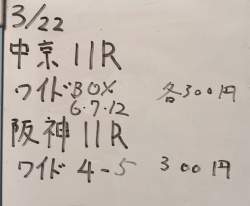 3/22
中京 11R
ワイドBOX 各300円
6.7.12
阪神 11R
ワイド 4-5 300円